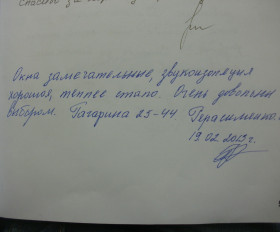 спасибо за
Окна замечательные, звукоизоляция
хорошая, теплее стало. Очень довольны
выбором. Гагарина 25-44 Герасименко.
19.02.2013г